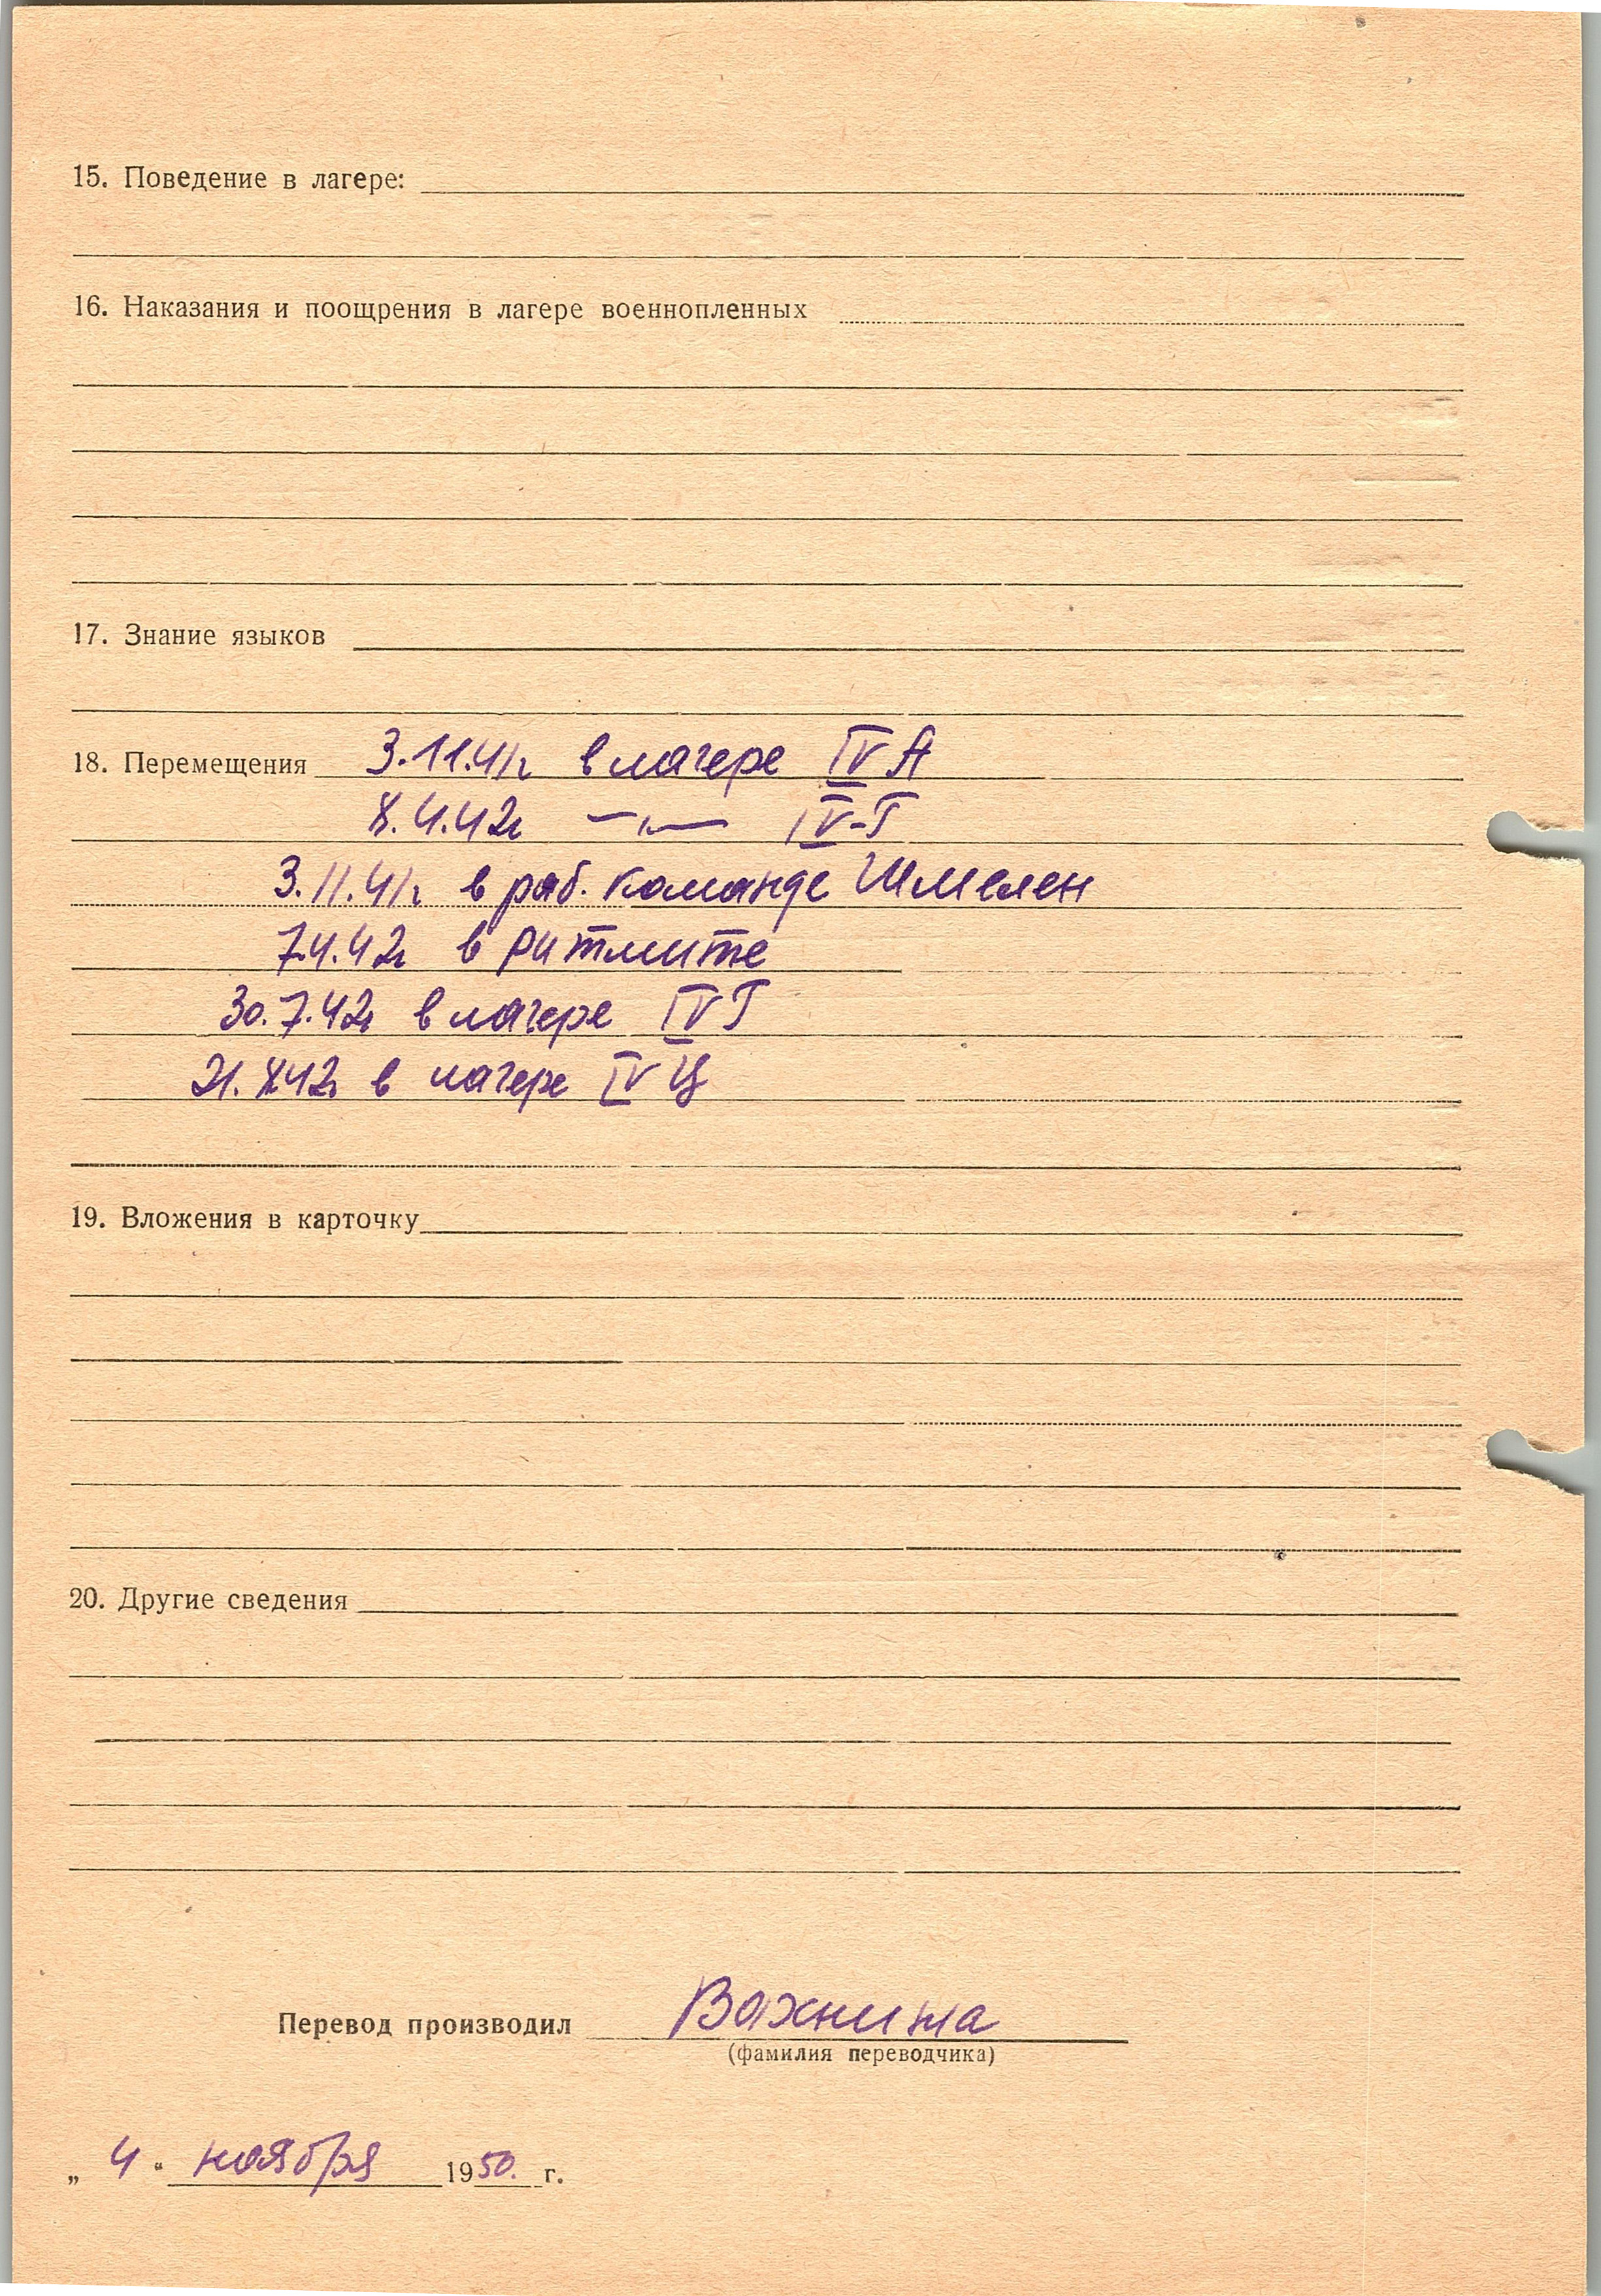 15. Поведение в лагере:
16. Наказания и поощрения в лагере военнопленных
17. Знание языков
18. Перемещения 3.11.41г в лагере IV А
8.4.42г —„— IV-Г
3.11.41г в раб. команде Шмелен
7.4.42г в Ритмите
30.7.42г в лагере IV Г
21.8.42г в лагере IV Ц
19. Вложения в карточку
20. Другие сведения
Перевод производил Вахнина
(фамилия переводчика)
„ 4 “ ноября 1950. г.